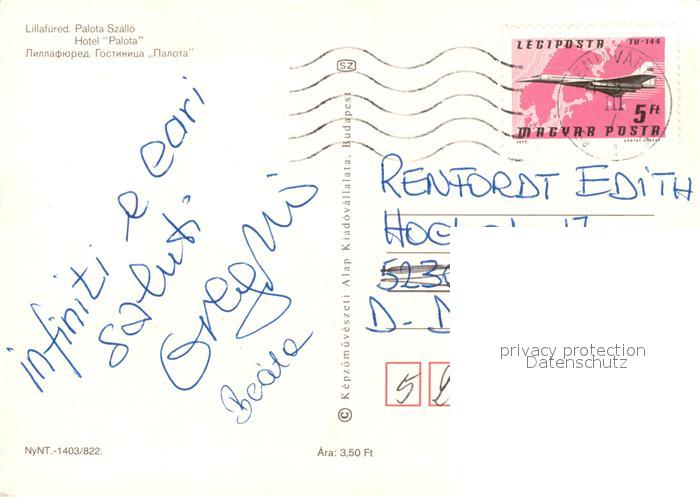 Lillafüred. Palota Szálló
Hotel "Palota"
Лиллафюред. Гостиница „Палота"
infiniti e cari
saluti
Beáta
NyNT.-1403/822.
Ára: 3,50 Ft
© Képzőművészeti Alap Kiadóvállalata, Budapest
SZ
LÉGIPOSTA TU-144
5 Ft
MAGYAR POSTA
1977
RENFORDT EDITH
523
D-
5
privacy protection
Datenschutz